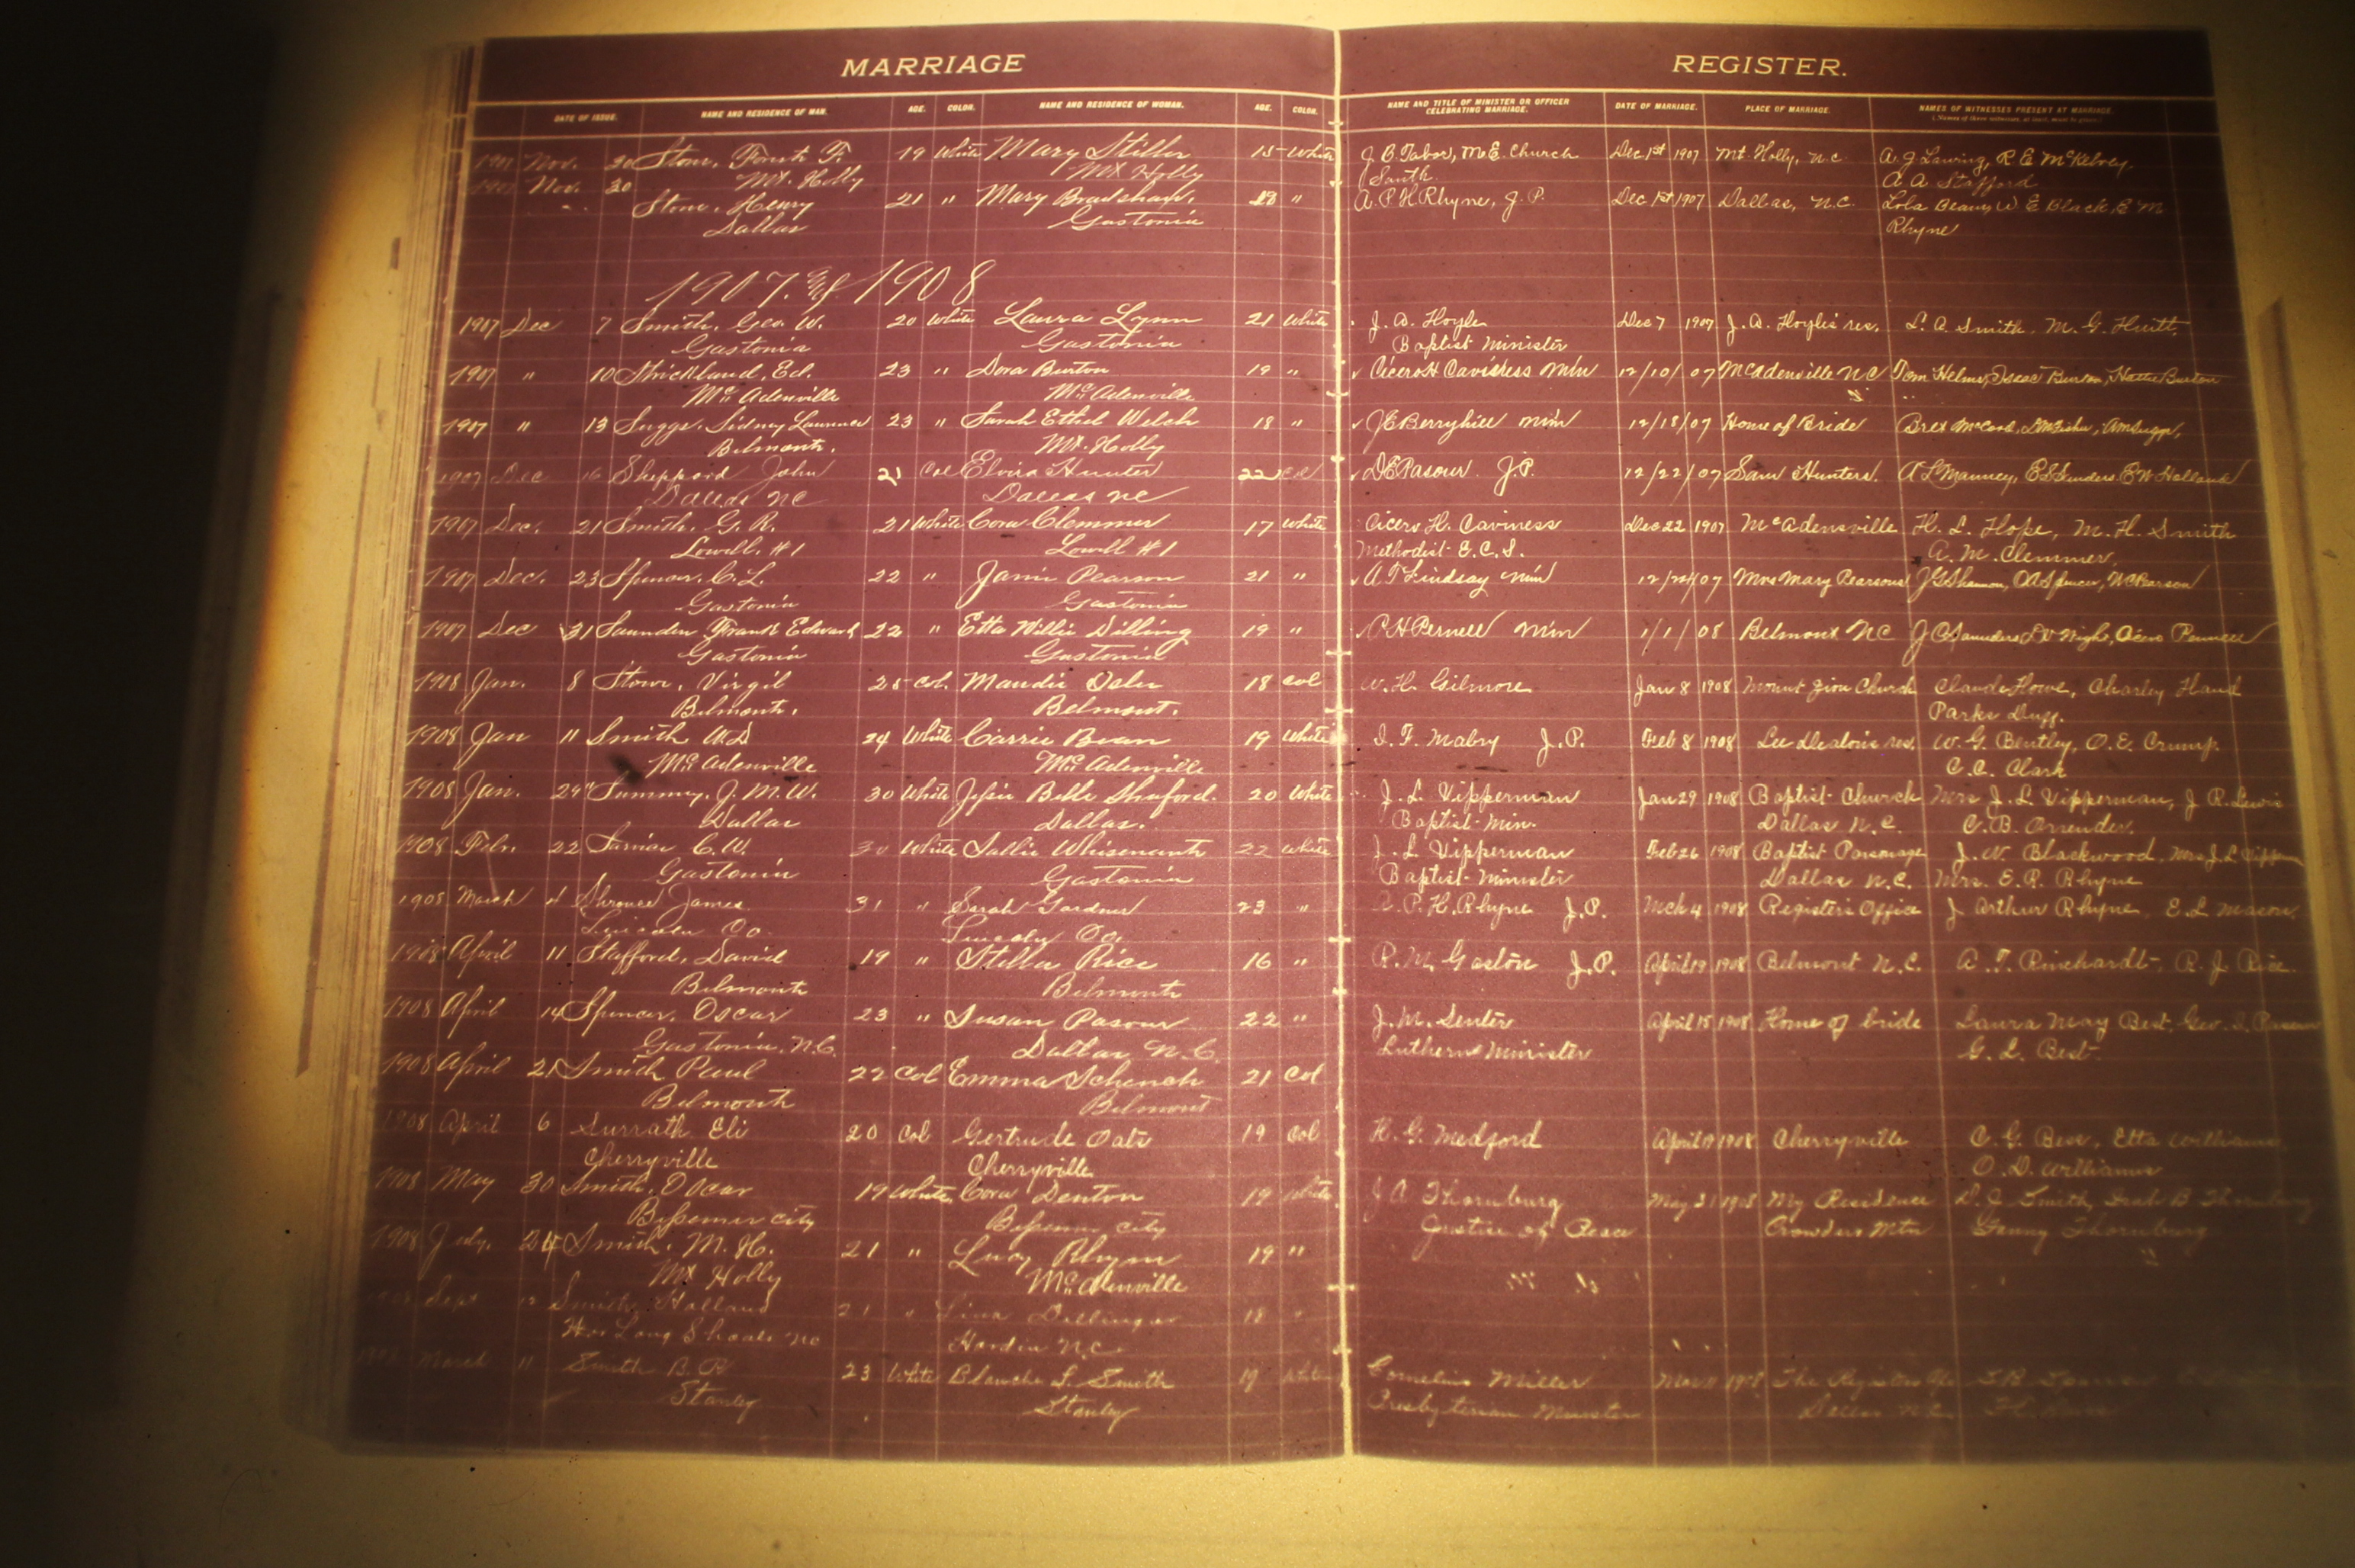 MARRIAGE REGISTER.
DATE OF ISSUE. NAME AND RESIDENCE OF MAN. AGE. COLOR. NAME AND RESIDENCE OF WOMAN. AGE. COLOR. NAME AND TITLE OF MINISTER OR OFFICER CELEBRATING MARRIAGE. DATE OF MARRIAGE. PLACE OF MARRIAGE. NAMES OF WITNESSES PRESENT AT MARRIAGE.
1907 Nov. 30 Stow, F. 19 White Mary Stiller 15 White J B Tabor, M.E. Church Dec 1st 1907 Mt. Holly, N.C. A. J. Lawing, R E McKelvey,
Mt. Holly Mt Holly South. A A Stafford
Nov. 30 Stow, Henry 21 " Mary Bradshaw, 18 " A. P. H Rhyne, J. P. Dec 1st 1907 Dallas, N.C. Lola Beam, W E Black, E M
Dallas Gastonia Rhyne
1907 & 1908
1907 Dec 7 Smith, Geo. W. 20 White Laura Lynn 21 White J. A. Hoyle Dec 7 1907 J. A. Hoyle's res. L. A. Smith, M. G. Huitt,
Gastonia Gastonia Baptist Minister
1907 " 10 Strickland, Ed. 23 " Dora Burton 19 " Cicero H Caviness Min 12/10/07 McAdenville NC Tom Helms, Isaac Burton, Hattie Burton
McAdenville McAdenville
1907 " 13 Suggs, Sidney Lawrence 23 " Sarah Ethel Welch 18 " J E Berryhill Min 12/18/07 Home of Bride
Belmont. Mt. Holly
1907 Dec 16 Sheppard John 21 Col Elvira Hunter 22 Col D E Pasour J.P. 12/22/07 Sam Hunters. A L Mauney, E W Holland
Dallas NC Dallas NC
1907 Dec. 21 Smith, G. R. 21 White Cora Clemmer 17 White Cicero H. Caviness Dec 22 1907 McAdensville H. L. Hope, M. H. Smith
Lowell, #1 Lowell #1 Methodist E. C. S. A. M. Clemmer,
1907 Dec. 23 Spencer, C. L. 22 " Janie Pearson 21 " A T Lindsay Min 12/24/07 Mrs Mary Pearsons
Gastonia Gastonia
1907 Dec 31 Saunders Frank Edward 22 " Etta Willie Dilling 19 " C H Pernell Min 1/1/08 Belmont NC J C Saunders
Gastonia Gastonia
1908 Jan. 8 Stowe, Virgil 25 Col. Maudie 18 Col W. H. Gilmore Jan 8 1908 Mount Zion Church Claude Howe, Charley Hand
Belmont. Belmont. Parks Duff.
1908 Jan 11 Smith W.D 24 White Carrie Bean 19 White I. F. Mabry J.P. Feb 8 1908 Lee res. W. G. Bentley, O. E. Crump.
McAdenville McAdenville C. C. Clark
1908 Jan. 29 Summey, J. M. W. 30 White Jessie Belle Shuford. 20 White J. L. Vipperman Jan 29 1908 Baptist Church Mrs J. L. Vipperman, J R. Lewis
Dallas Dallas. Baptist Min. Dallas N. C. C. B. Arrender.
1908 Feb. 22 C. W. 30 White Sallie Whisenant 22 White J. L Vipperman Feb 26 1908 Baptist Parsonage J. W. Blackwood, Mrs J. L
Gastonia Gastonia Baptist Minister Dallas N.C. Mrs. E. R. Rhyne
1908 March 4 James 31 " Sarah Gardner 23 " A. P. H. Rhyne J.P. Mch 4 1908 Registers Office J Arthur Rhyne, E. L
Lincoln Co.
1908 April 11 Stafford, David 19 " Stella Rice 16 " R. M. Gaston J.P. April 19 1908 Belmont N.C. A. T. Rinehardt, R. J. Rice.
Belmont Belmont
1908 April 14 Spencer, Oscar 23 " Susan Pasour 22 " J. M. Senter April 15 1908 Home of bride Laura May Best, Geo.
Gastonia, N.C. Dallas, N.C. Lutheran Minister G. L. Best.
1908 April 21 Smith Paul 22 Col Emma Schenck 21 Col
Belmont Belmont
1908 April 6 Surrath Eli 20 Col Gertrude Oats 19 Col H. G. Medford April 1908 Cherryville C. G. Etta Williams
Cherryville Cherryville O. D. Williams
1908 May 30 Smith, Oscar 19 White Cora Denton 19 White J A Thornburg May 31 1908 My Residence D. J. Smith, B Thornburg
Bessemer city Bessemer city Justice of Peace Crowders Mtn Fanny Thornburg
1908 July, 24 Smith, M. H. 21 " Lucy Rhyne 19 "
Mt Holly McAdenville
Sept 12 Smith Holland 21 " Lina Dellinger 18 "
Long Shoals NC Hardin N.C.
March 11 Smith B. R 23 White Blanche L. Smith 19 White Cornelius Miller The Register
Stanley Stanley Presbyterian Minister